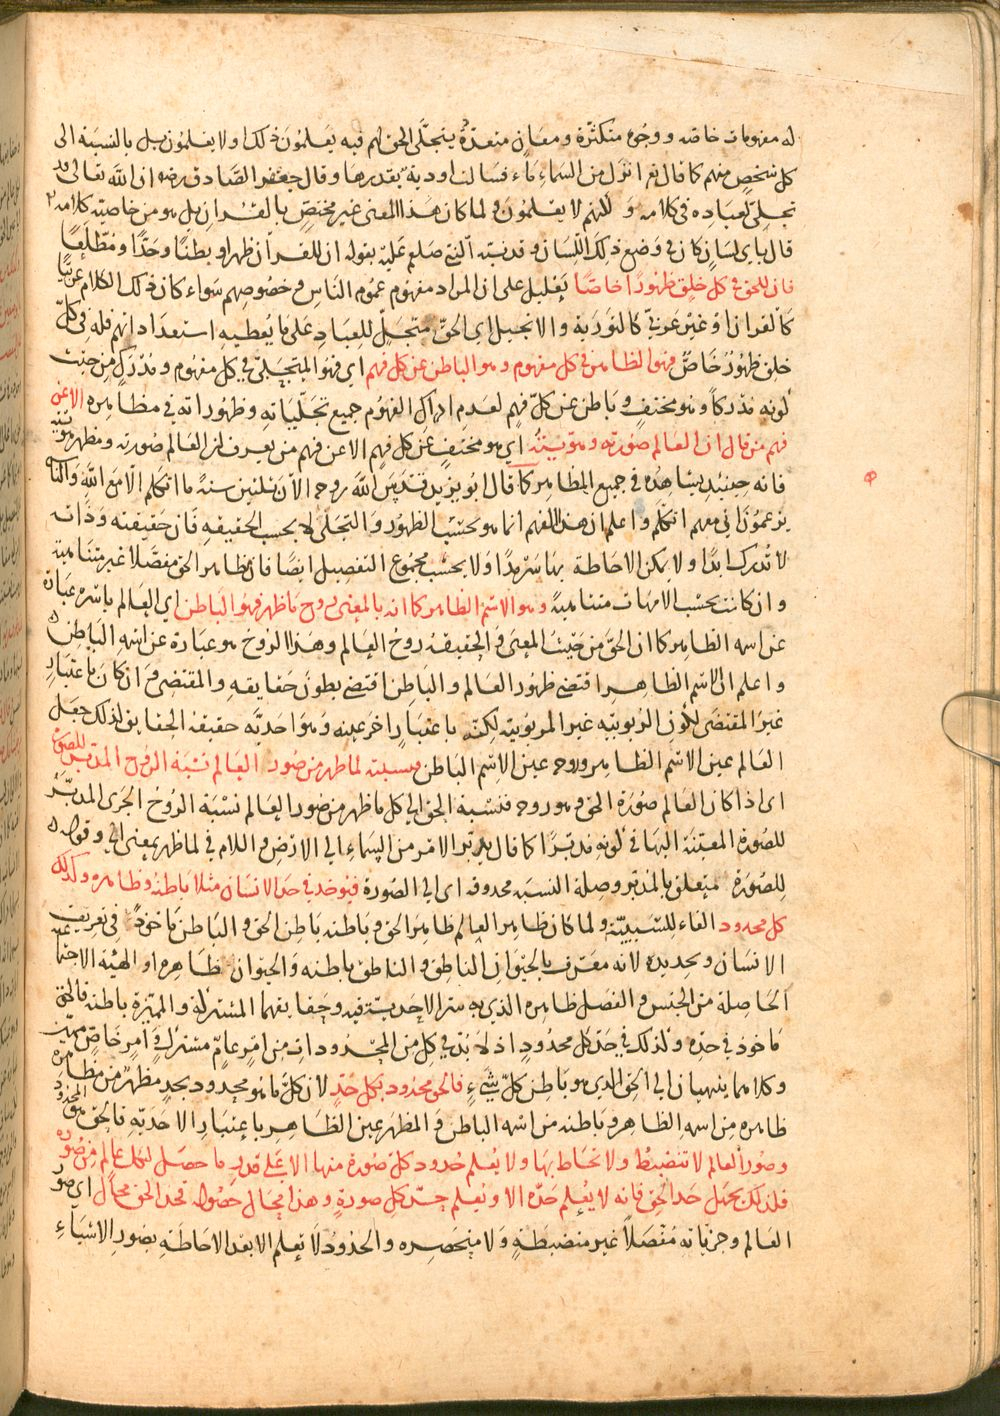 له مفهومات خاصه ووجوه متكثرة ومعان متعددة يتجلى الحق لهم فيه يعلمون ذلك او لا يعلمون بل بالنسبة الى
كل شخص منهم كما قال تعالى انزل من السماء ماء فسالت اودية بقدرها وقال جعفر الصادق رضه ان الله تعالى قد
تجلى لعباده في كلامه ولكنهم لا يعلمون ولما كان هذا المعنى غير مختص بالقران بل هو من خاصية كلامه
قال باي لسان كان في وضع ذلك اللسان وقد نبه النبي صلعم عليه بقوله ان للقران ظهرا وبطنا وحدا ومطلعا
فان للحق في كل خلق ظهورا خاصا تعليل على ان المراد مفهوم عموم الناس وخصوصهم سواء كان ذلك الكلام عربيا
كالقران او غير عربي كالتورية والانجيل اى الحق متجل للعباد على ما يعطيه استعداداتهم فله في كل
خلق ظهور خاص فهو الظاهر في كل مفهوم وهو الباطن عن كل فهم اى فهو المتجلى في كل مفهوم ومدرك من حيث
كونه مدركا وهو مختف وباطن عن كل فهم لعدم ادراك الفهوم جميع تجلياته وظهوراته في مظاهره الا عن
فهم من قال ان العالم صورته وهويته اى هو مختف عن كل فهم الا عن فهم من يعرف ان العالم صورته ومظهر هويته
فانه حينئذ يشاهده في جميع المظاهر كما قال ابو يزيد قدس الله روحه الآن ثلثين سنة ما اتكلم الا مع الله والناس
يزعمون اني معهم اتكلم واعلم ان هذا الفهم انما هو بحسب الظهور والتجلى لا بحسب الحقيقه فان حقيقته وذاته
لا تدرك ابدا ولا يمكن الاحاطة بها سرمدا ولا بحسب مجموع التفصيل ايضا فان مظاهر الحق مفصلا غير متناهية
وان كانت بحسب الامهات متناهية وهو الاسم الظاهر كما انه بالمعنى روح ما ظهر فهو الباطن اى العالم باسره عبارة
عن اسمه الظاهر كما ان الحق من حيث المعنى والحقيقة روح العالم وهذا الروح هو عبارة عن اسمه الباطن
واعلم ان الاسم الظاهر اقتضى ظهور العالم والباطن اقتضى بطون حقايقه والمقتضى وان كان باعتبار
غير المقتضى لكون الربوبيه غير المربوبية لكنه باعتبار اخر عينه وهو احدية حقيقة الحقايق لذلك جعل
العالم عين الاسم الظاهر وروحه عين الاسم الباطن فنسبته لما ظهر من صور العالم نسبة الروح المدبر للصورة
اى اذا كان العالم صورة الحق وهو روحه فنسبة الحق الى كل ما ظهر من صور العالم نسبة الروح الجزئى المدبر
للصورة المعينة اليها في كونه مدبرا كما قال يدبر الامر من السماء الى الارض واللام في لما ظهر بمعنى الى وقوله
للصورة متعلق بالمدبر وصلة النسبة محذوفه اى الى الصورة فيؤخذ في حد الانسان مثلا باطنه وظاهره وكذلك
كل محدود الفاء للسببية ولما كان ظاهر العالم ظاهر الحق وباطنه باطن الحق والباطن ماخوذ في تعريف
الانسان وتحديده لانه معرف بالحيوان الناطق والناطق باطنه والحيوان ظاهره او الهيئة الاجتماعية
الحاصلة من الجنس والفصل ظاهره الذي به ستر الاحدية فيه وحقايقهما المشتركة والمميزة باطنه فالحق
ماخوذ في حده وكذلك في حد كل محدود اذ لا بد في كل من المحدودات من امر عام مشترك وامر خاص مميز
وكلاهما ينتهيان الى الحق الذي هو باطن كل شيء فالحق محدود بكل حد لان كل ما هو محدود بحد مظهر من مظاهره
ظاهره من اسمه الظاهر وباطنه من اسمه الباطن والمظهر عين الظاهر باعتبار الاحدية فالحق هو المحدود
وصور العالم لا تنضبط ولا تحاط بها ولا يعلم حدود كل صورة منها الا على قدر ما حصل لكل عالم من صوره
فلذلك يجهل حد الحق فانه لا يعلم حده الا ويعلم حد كل صورة وهذا محال حصوله فحد الحق محال اى صور
العالم وجزئياته مفصلا غير منضبطة ولا منحصره والحدود لا تعلم الا بعد الاحاطة بصور الاشياء